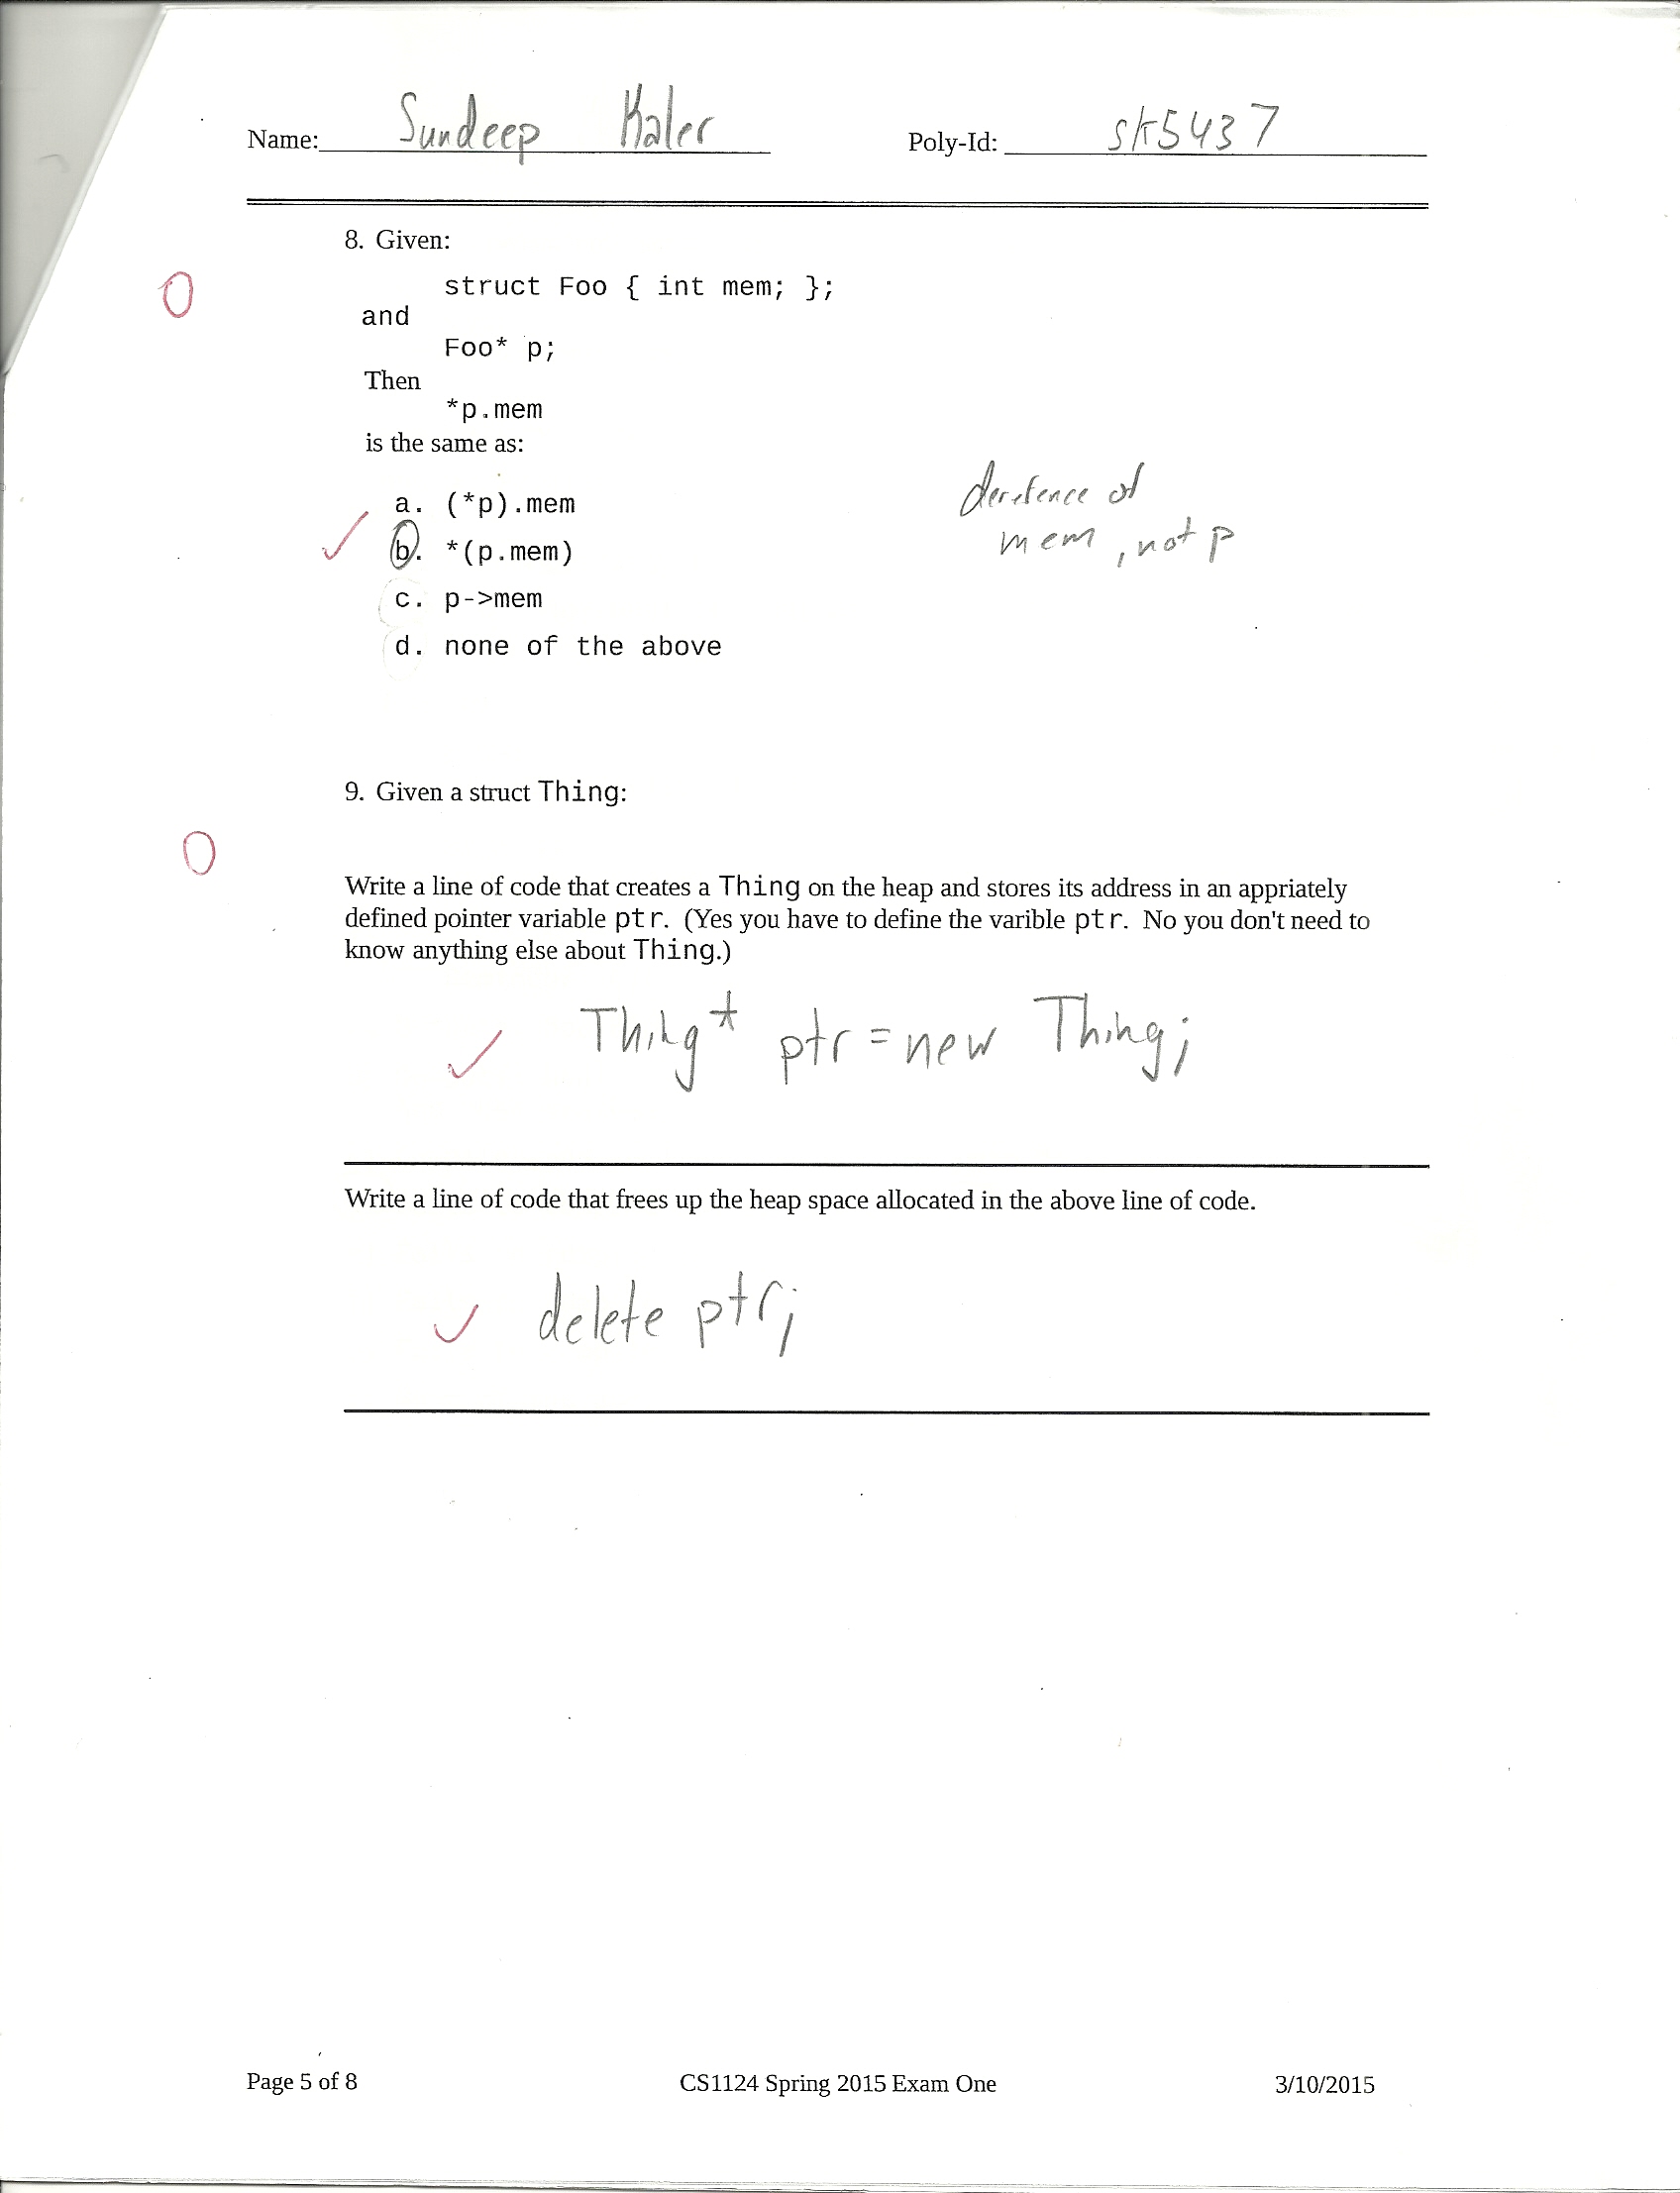 Name: Sundeep Kaler Poly-Id: sk5437
8. Given:
0
struct Foo { int mem; };
and
Foo* p;
Then
*p.mem
is the same as:
a. (*p).mem
b. *(p.mem)
c. p->mem
d. none of the above
derefence of
mem, not p
9. Given a struct Thing:
0
Write a line of code that creates a Thing on the heap and stores its address in an appriately
defined pointer variable ptr. (Yes you have to define the varible ptr. No you don't need to
know anything else about Thing.)
Thing* ptr = new Thing;
Write a line of code that frees up the heap space allocated in the above line of code.
delete ptr;
Page 5 of 8 CS1124 Spring 2015 Exam One 3/10/2015